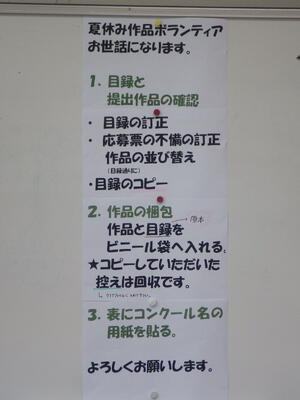 夏休み作品ボランティア
お世話になります。
1. 目録と
提出作品の確認
・ 目録の訂正
・ 応募票の不備の訂正
作品の並び替え
(目録通りに)
・目録のコピー
2. 作品の梱包
→原本
作品と目録を
ビニール袋へ入れる。
★コピーしていただいた
控えは回収です。
3. 表にコンクール名の
用紙を貼る。
よろしくお願いします。